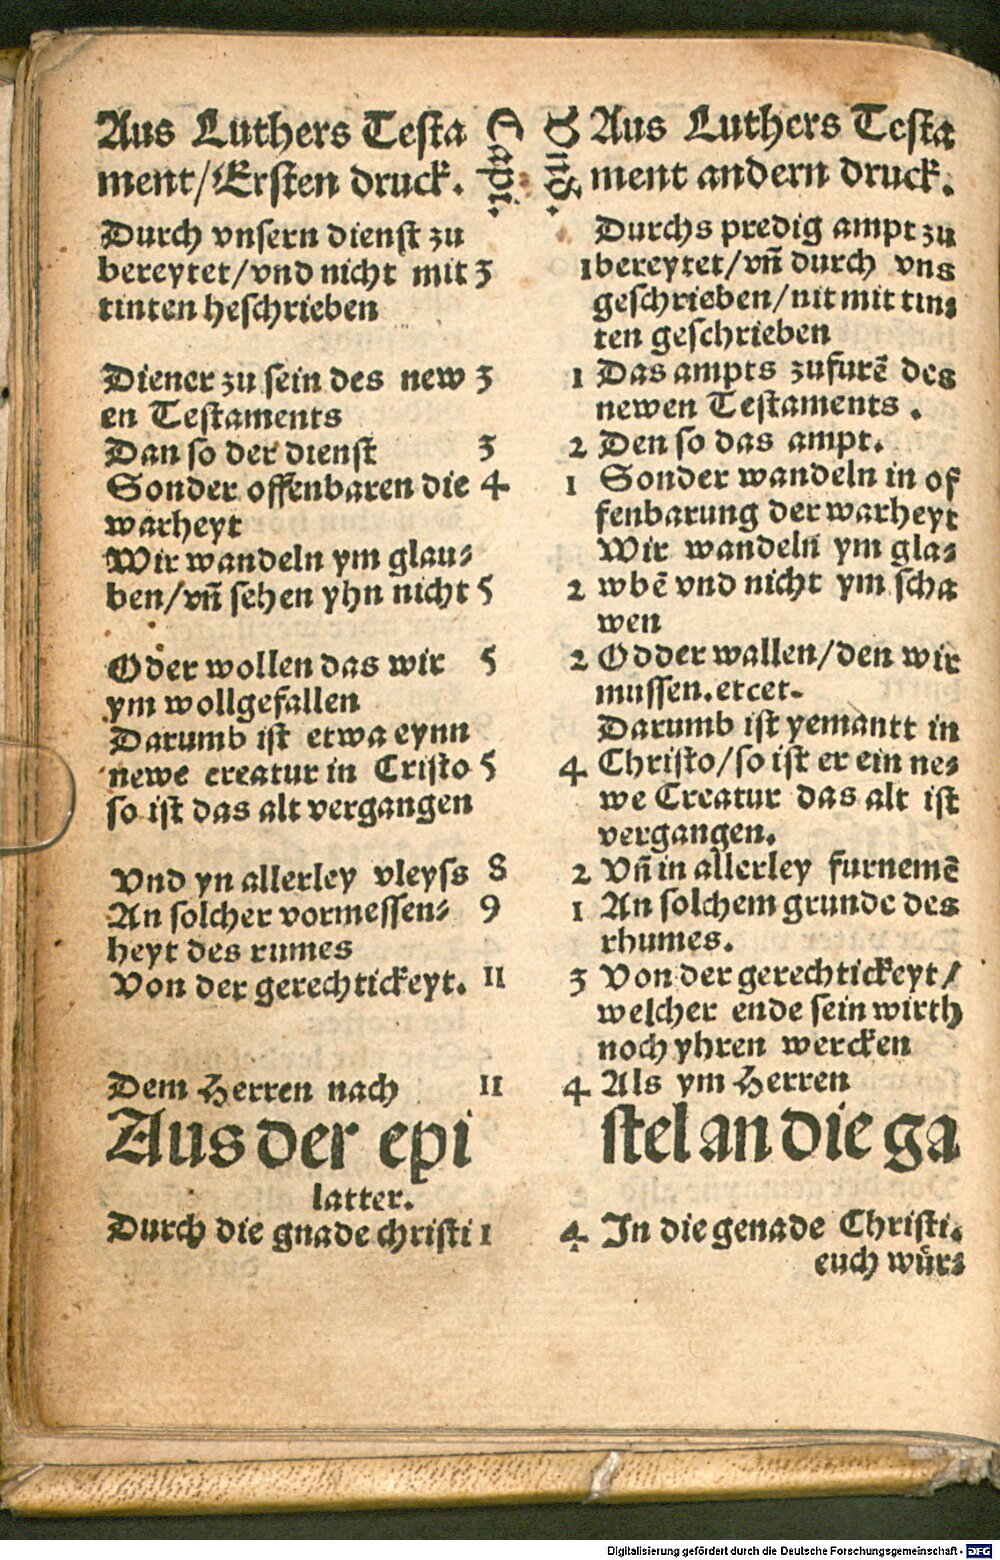 Aus Luthers Testa
ment/Ersten druck.
Capi.
Durch vnsern dienst zu
bereytet/vnd nicht mit 3
tinten heschrieben
Diener zu sein des new 3
en Testaments
Dan so der dienst 3
Sonder offenbaren die 4
warheyt
Wir wandeln ym glau⸗
ben/vñ sehen yhn nicht 5
Oder wollen das wir 5
ym wollgefallen
Darumb ist etwa eynn
newe creatur in Cristo 5
so ist das alt vergangen
Vnd yn allerley vleyss 8
An solcher vormessen⸗ 9
heyt des rumes
Von der gerechtickeyt. 11
Dem Herren nach 11
Aus der epi
latter.
Durch die gnade christi 1
Aus Luthers Testa
ment andern druck.
Durchs predig ampt zu
1 bereytet/vñ durch vns
geschrieben/nit mit tin⸗
ten geschrieben
1 Das ampts zufurẽ des
newen Testaments.
2 Den so das ampt.
1 Sonder wandeln in of
fenbarung der warheyt
Wir wandeln ym gla⸗
2 wbẽ vnd nicht ym scha
wen
2 Odder wallen/den wir
mussen.etcet.
Darumb ist yemantt in
4 Christo/so ist er ein ne⸗
we Creatur das alt ist
vergangen.
2 Vñ in allerley furnemẽ
1 An solchem grunde des
rhumes.
3 Von der gerechtickeyt/
welcher ende sein wirth
noch yhren wercken
4 Als ym Herren
stel an die ga
4 In die genade Christi.
euch wür⸗
Digitalisierung gefördert durch die Deutsche Forschungsgemeinschaft - DFG